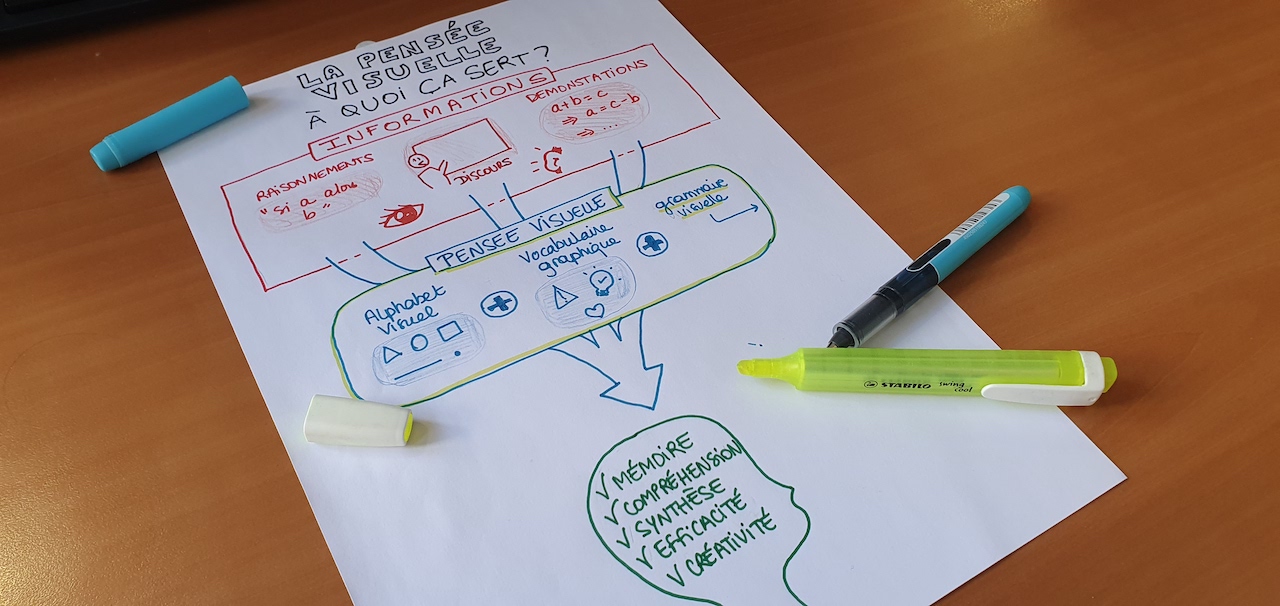 LA PENSÉE
VISUELLE
À QUOI ÇA SERT ?
INFORMATIONS
RAISONNEMENTS
"si a alors
b"
DISCOURS
DEMONSTATIONS
a+b=c
⇒ a=c-b
⇒ ...
PENSEE VISUELLE
Alphabet
visuel
Vocabulaire
graphique
grammaire
visuelle
STABILO swing
cool
√ MÉMOIRE
√ COMPRÉHENSION
√ SYNTHÈSE
√ EFFICACITÉ
√ CRÉATIVITÉ